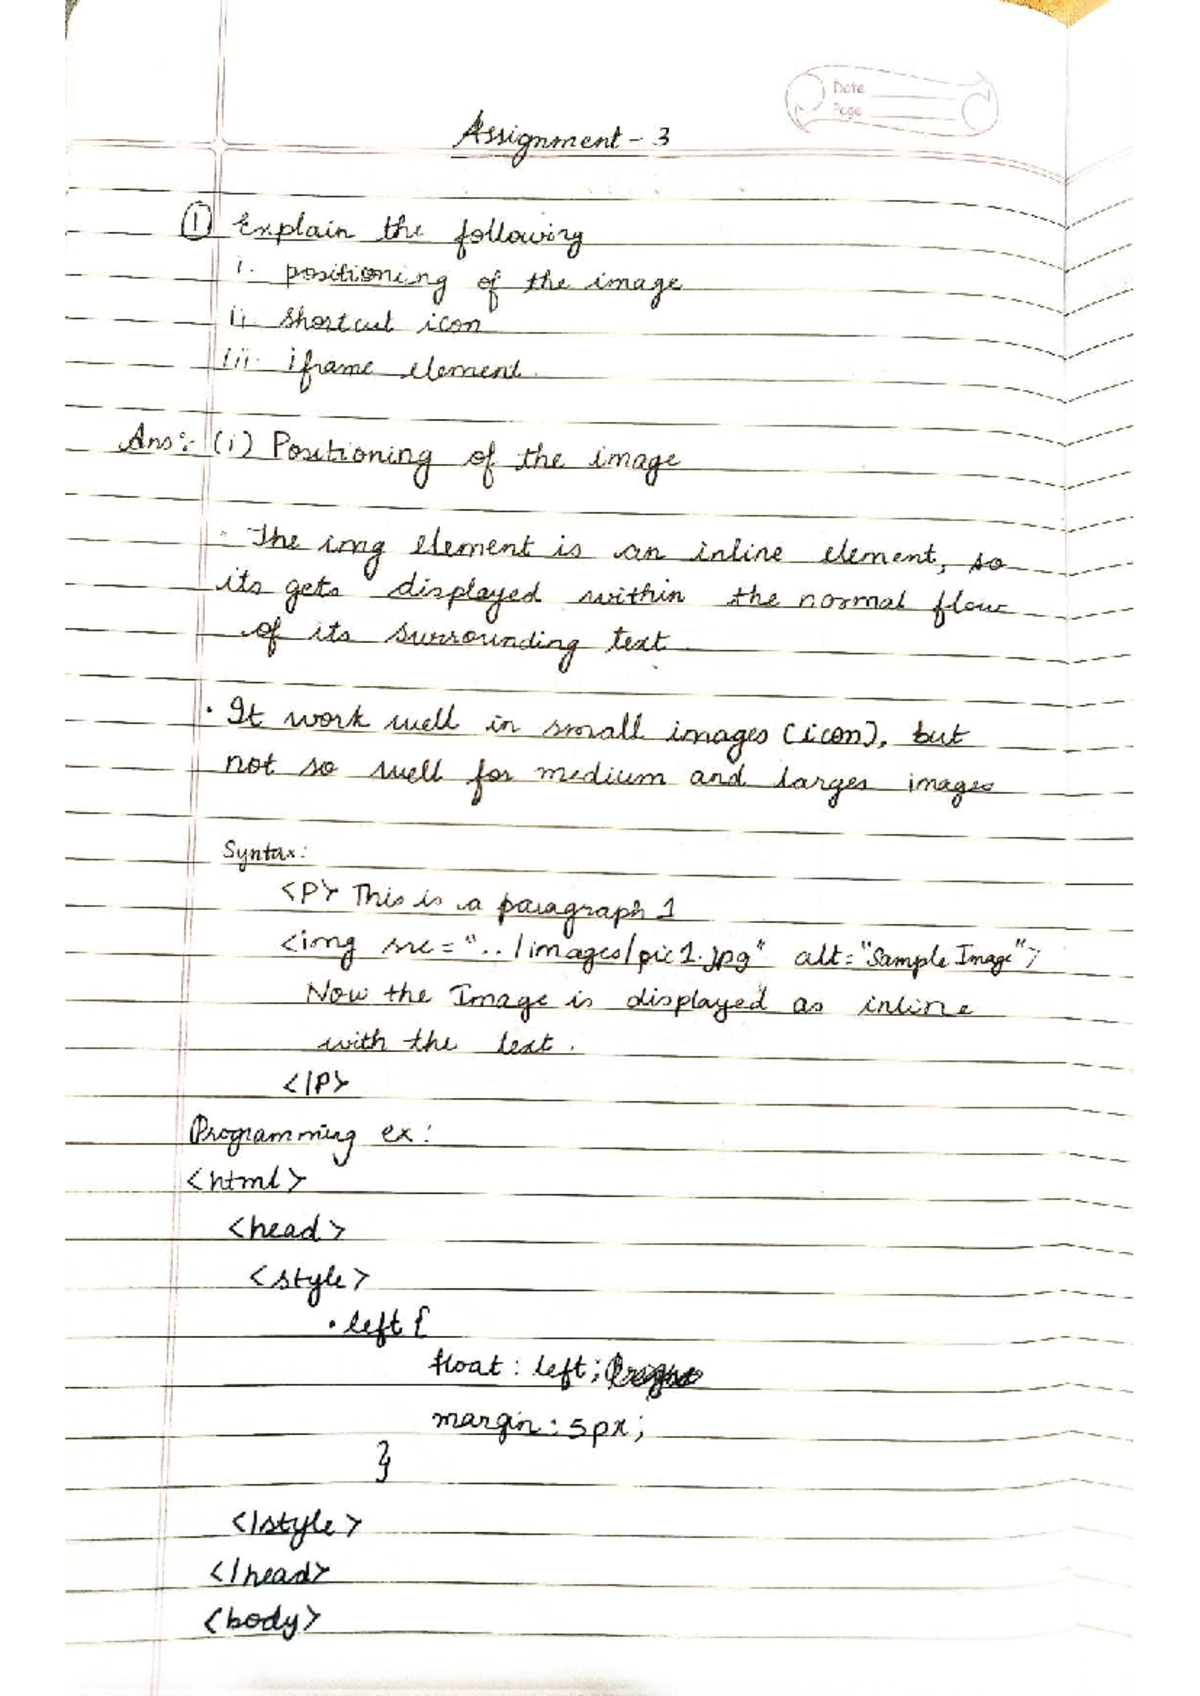 Date
Page
Assignment - 3
① Explain the following
i. positioning of the image
ii. shortcut icon
iii. iframe element.
Ans:- (i) Positioning of the image
· The img element is an inline element, so
its gets displayed within the normal flow
of its surrounding text.
· It work well in small images (icon), but
not so well for medium and larges images
Syntax:
<P> This is a paragraph 1
<img src = "../images/pic1.jpg" alt="Sample Image"/
Now the Image is displayed as inline
with the text.
</P>
Programming ex:
<html>
<head>
<style>
.left {
float: left;
margin: 5px;
}
</style>
</head>
<body>